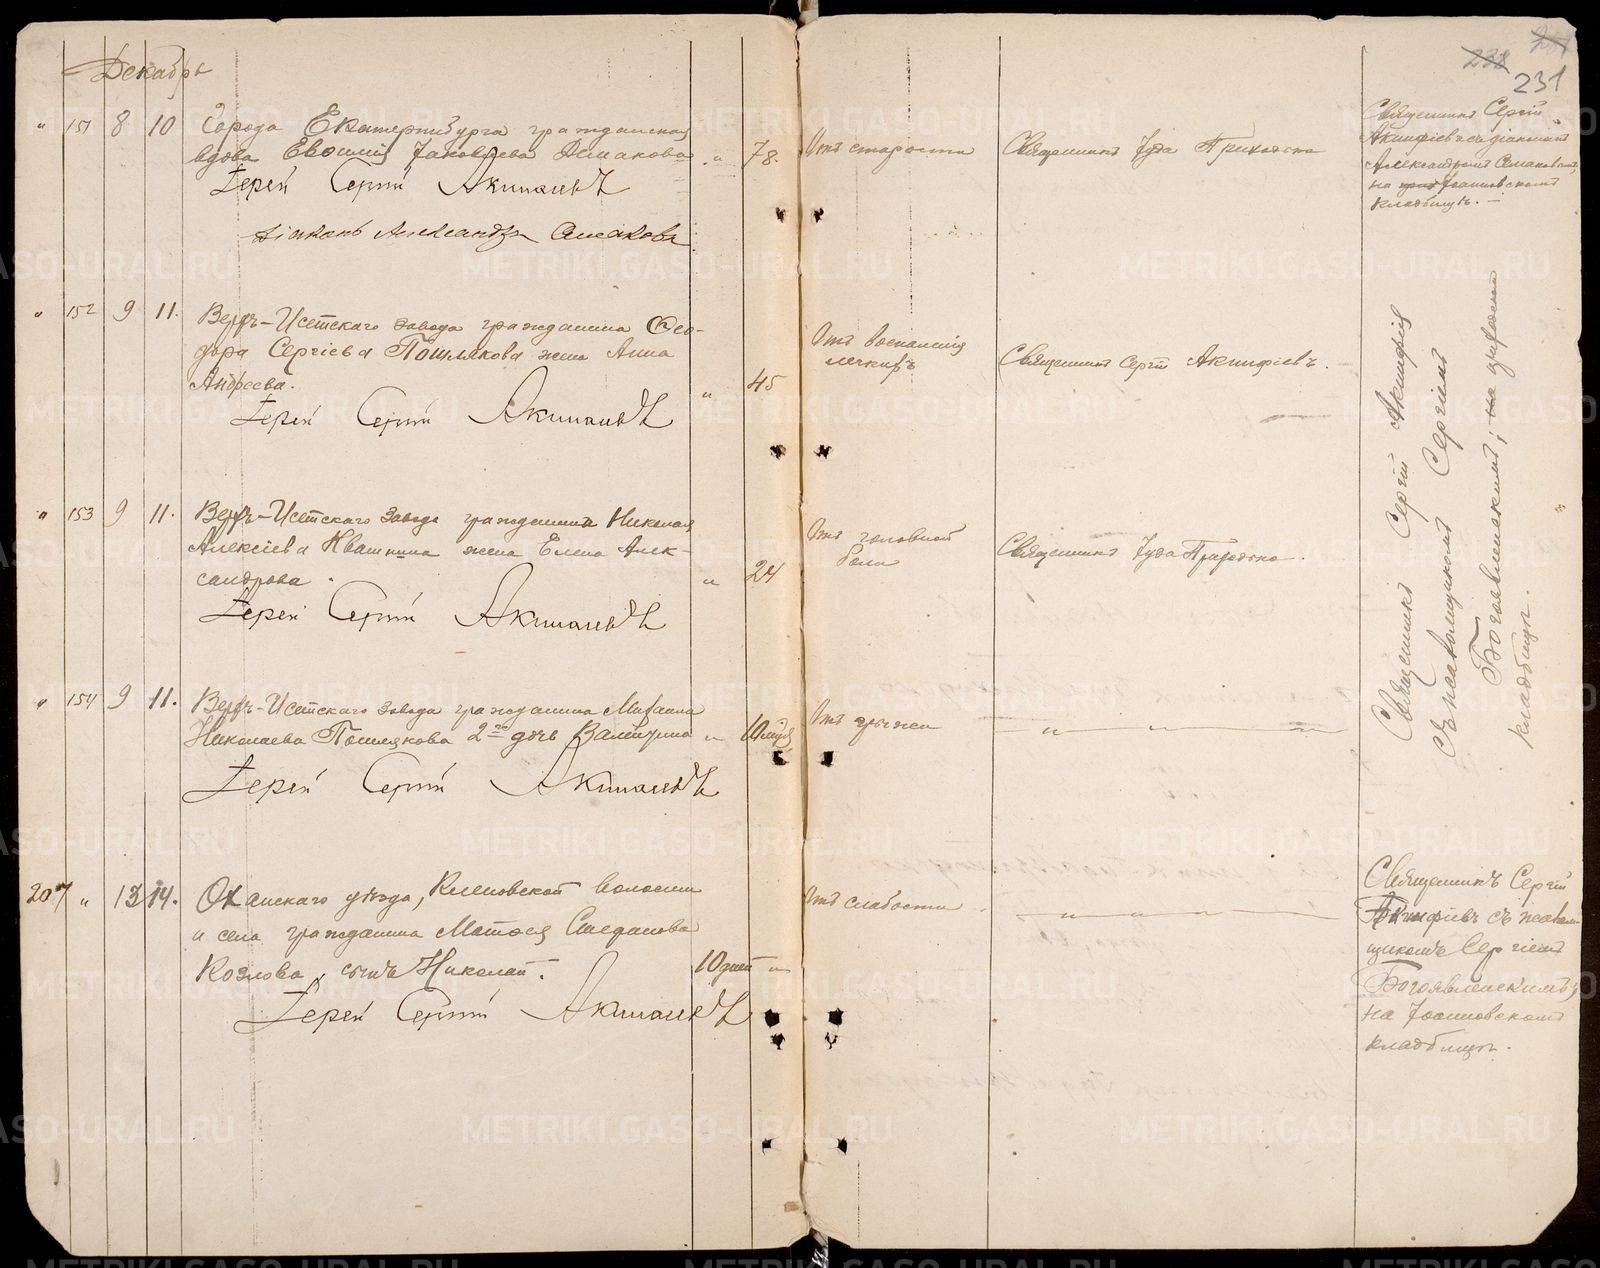 Декабрь
238
231
" 151 8 10 Города Екатеринбурга гражданская
вдова Евфимія Іаковлева Асмакова " 78.
Отъ старости
Священникъ Іуда Приходько
Іерей Сергій Акинфіевъ
Діаконъ Александръ Асмаковъ
Священникъ Сергій
Акинфіевъ съ діакономъ
Александромъ Асмаковымъ,
на Іоанновскомъ
кладбищѣ. —
" 152 9 11. Верхъ-Исетскаго завода гражданина Ѳео-
дора Сергіева Пошлякова жена Анна
Андреева. " 45
Отъ воспаленія
легкихъ
Священникъ Сергій Акинфіевъ.
Іерей Сергій Акинфіевъ
" 153 9 11. Верхъ-Исетскаго завода гражданина Николая
Алексіева Квашнина жена Елена Алек-
сандрова. " 24
Отъ головной
боли
Священникъ Іуда Приходько.
Іерей Сергій Акинфіевъ
" 154 9 11. Верхъ-Исетскаго завода гражданина Михаила
Николаева Пошлякова 2ая дочь Валентина " 10 мѣс.
Отъ грыжи
" " "
Іерей Сергій Акинфіевъ
Священникъ Сергій Акинфіевъ
съ псаломщикомъ Сергіемъ
Богоявленскимъ; на
кладбищѣ.
207 " 13 14. Оханскаго уѣзда, Кленовской волости
и села гражданина Матѳея Стефанова
Козлова, сынъ Николай. 10 дней "
Отъ слабости.
" " "
Іерей Сергій Акинфіевъ
Священникъ Сергій
Акинфіевъ съ псалом-
щикомъ Сергіемъ
Богоявленскимъ;
на Іоанновскомъ
кладбищѣ.
METRIKI.GASO-URAL.RU